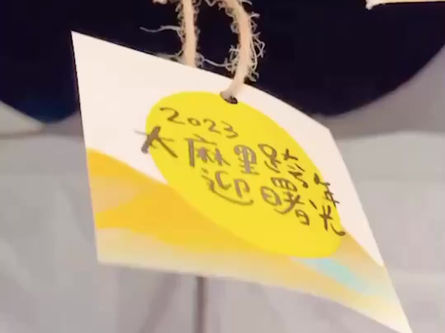 2023
太麻里跨年
迎曙光